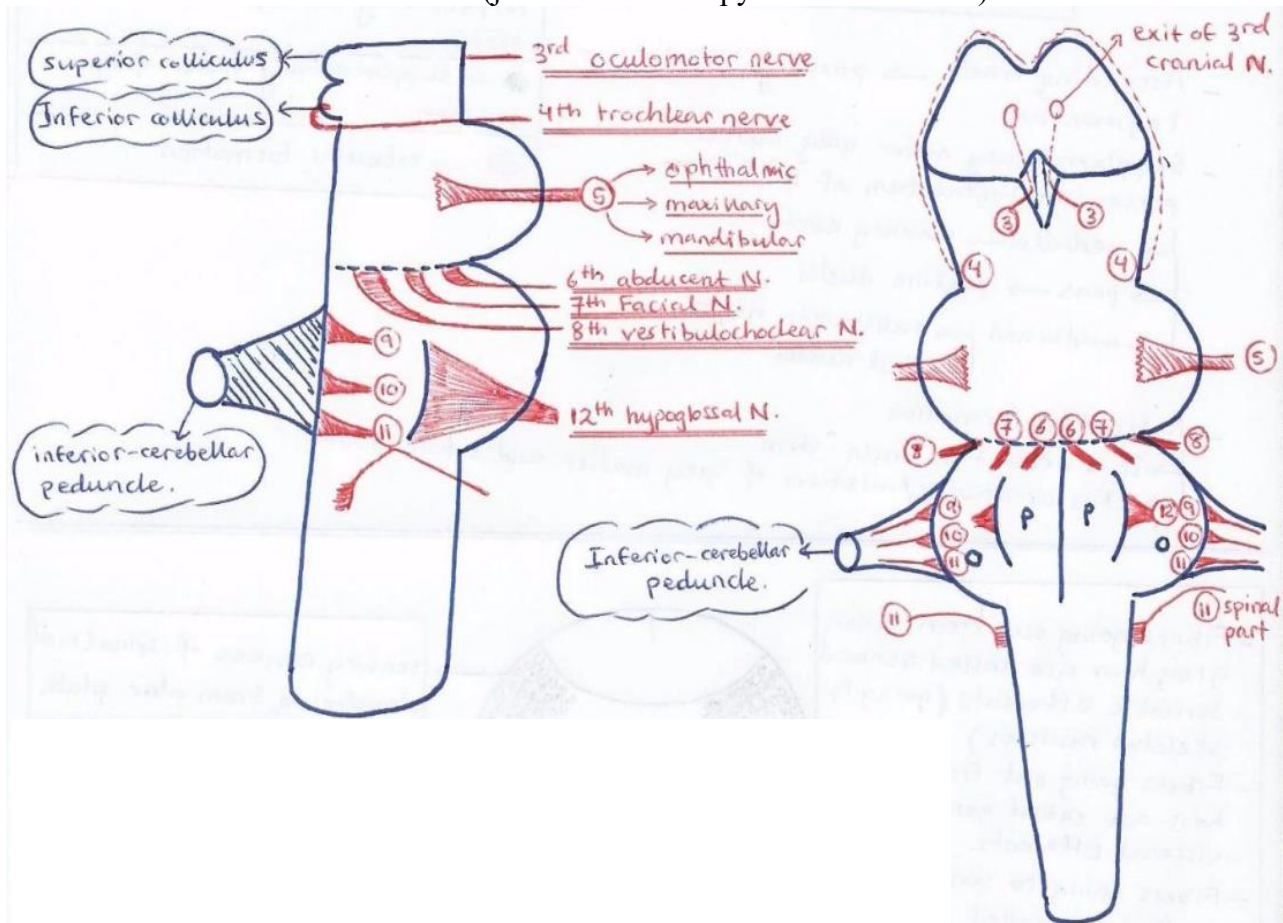 superior colliculus
Inferior colliculus
3rd oculomotor nerve
4th trochlear nerve
5
ophthalmic
maxillary
mandibular
6th abducent N.
7th Facial N.
8th vestibulochoclear N.
9
10
11
12th hypoglossal N.
inferior-cerebellar
peduncle.
exit of 3rd
cranial N.
3 3
4 4
5
7 6 6 7
8 8
9 P P 12 9
10 10
11 11
Inferior-cerebellar
peduncle.
11
11 spinal
part